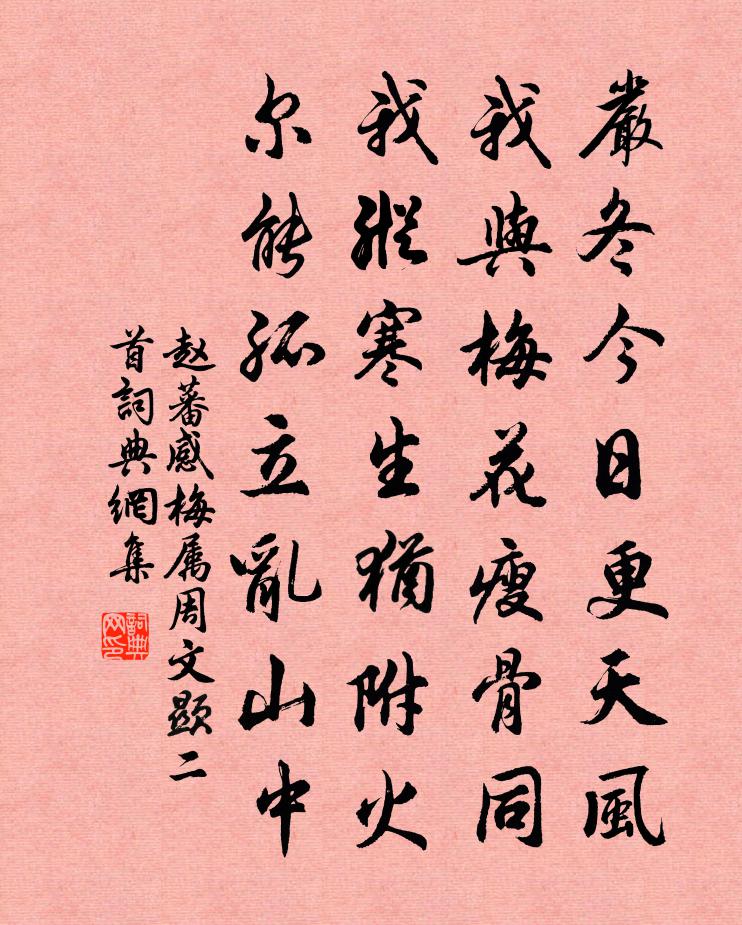 嚴冬今日更天風
我與梅花瘦骨同
我縱寒生猶附火
尔能孤立亂山中
赵蕃感梅属周文顕二
首詞典網集
詞典
网印